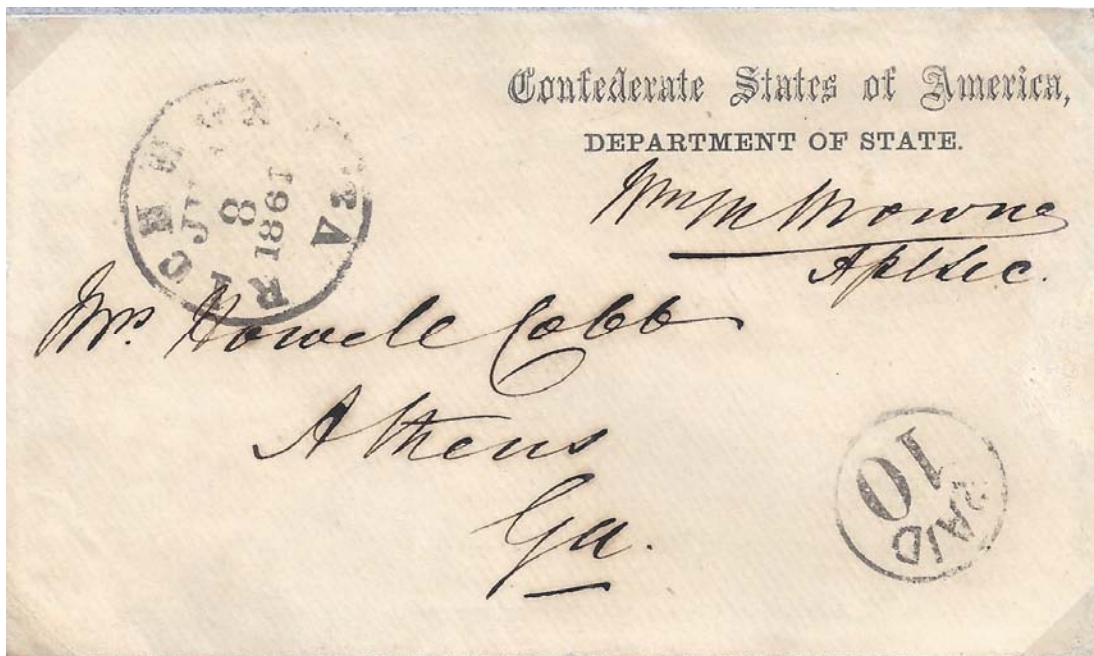 Confederate States of America,
DEPARTMENT OF STATE.
Wm M Browne
Ast Sec.
RICHMOND VA.
8
1861
Mrs. Howell Cobb
Athens
Ga.
PAID
10